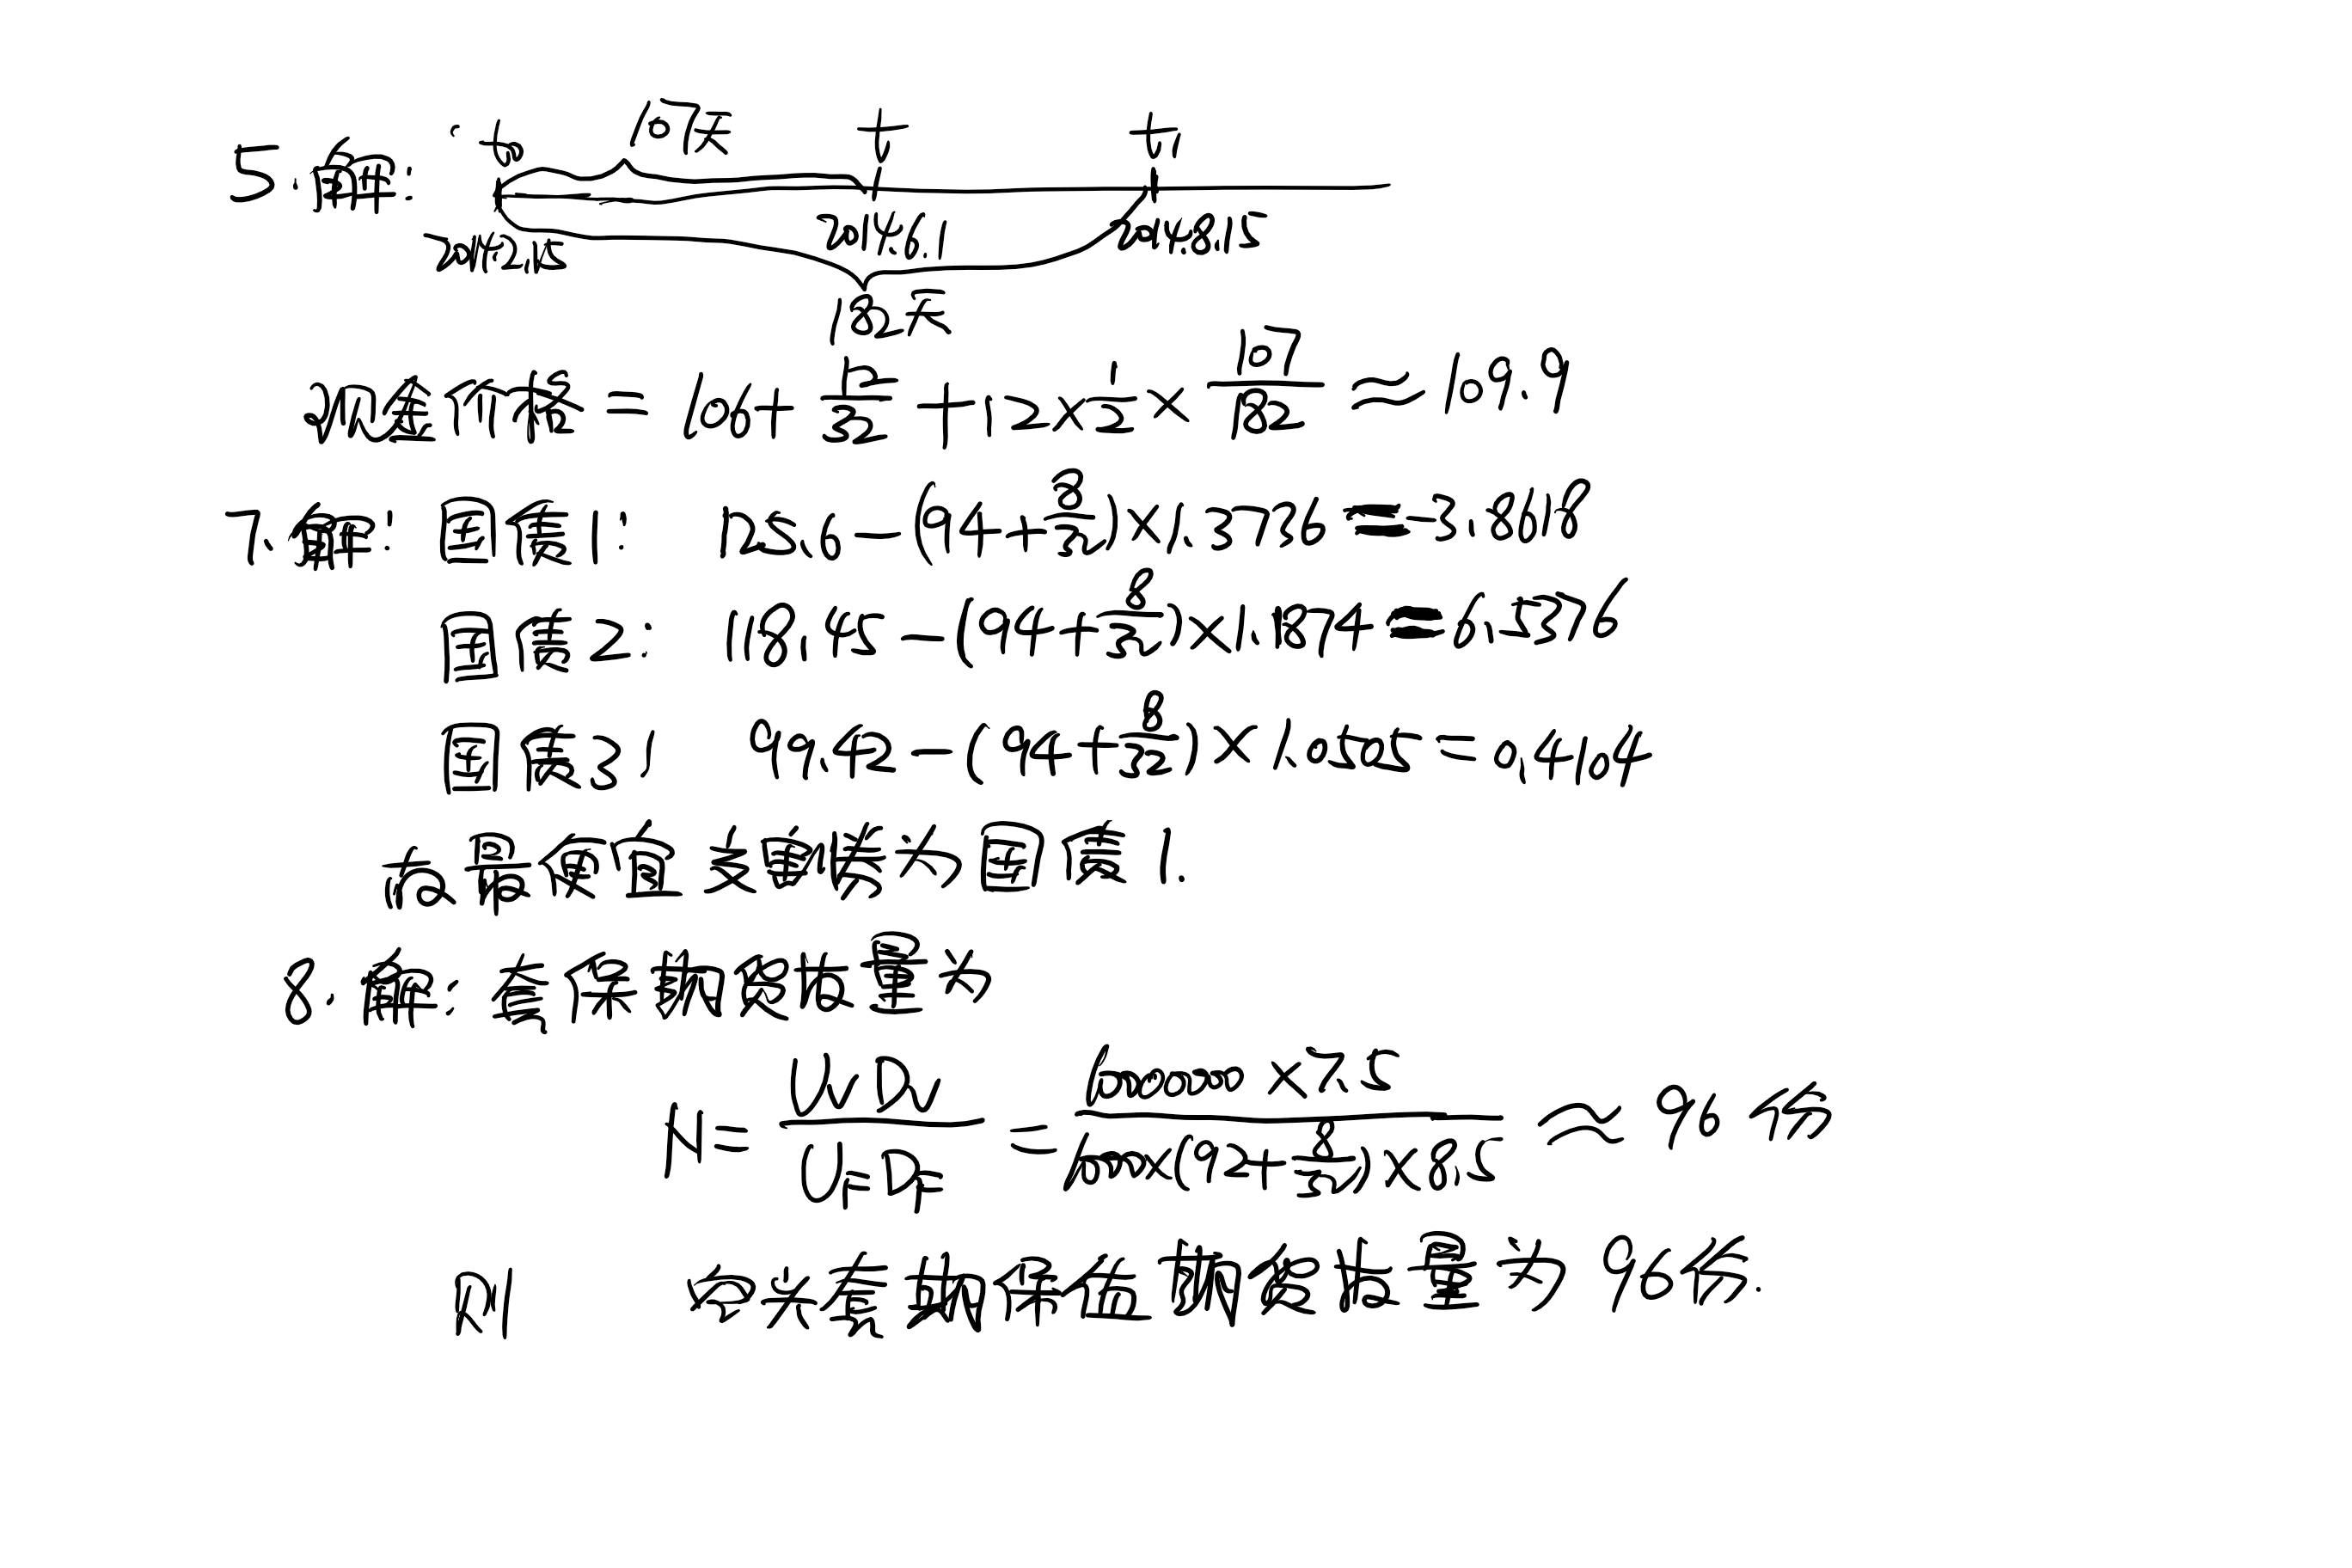 5.解: t₀ 107天 t t₁
2014.2.15 2014.6.1 2014.8.15
182天
现金价格 = 106 + 5/32 + 12×1/2×107/182 ≈ 109.9
7.解: 国债1: 125.6-(94+8/32)×1.3736=-3.868
国债2: 118.45-(94+8/32)×1.1874=6.5376
国债3: 99.42-(94+8/32)×1.0505=0.4104
故最便宜交割债为国债1.
8.解: 套保执行比量为
N= V_P D_P / V_F D_F = 6000000×7.5 / 600×(92+8/32)×8.5 ≈ 96份
则 合约套期保值比量为96份.